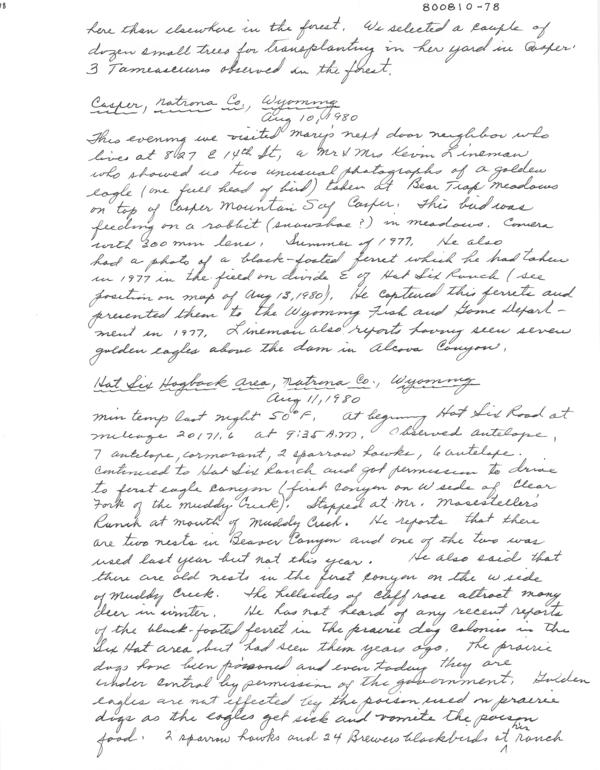 800810-78
here than elsewhere in the forest. We selected a couple of
dozen small trees for transplanting in her yard in Casper.
3 Tamiasciurus observed in the forest.
Casper, Natrona Co., Wyoming
Aug 10, 1980
This evening we visited Mary's next door neighbor who
lives at 827 E 14th St, a Mr & Mrs Kevin Lineman
who showed us two unusual photographs of a golden
eagle (one full head of bird) taken at Bear Trap Meadows
on top of Casper Mountain S of Casper. This bird was
feeding on a rabbit (snowshoe?) in meadows. Camera
with 200 mm lens. Summer of 1977. He also
had a photo of a black-footed ferret which he had taken
in 1977 in the field on divide E of Hat Six Ranch (see
position on map of Aug 13, 1980). He captured this ferrets and
presented them to the Wyoming Fish and Game Depart-
ment in 1977. Lineman also reports having seen seven
golden eagles above the dam in Alcova Canyon.
Hat Six Hogback Area, Natrona Co., Wyoming
Aug 11, 1980
Min temp last night 50°F. At beginning Hat Six Road at
mileage 20171.6 at 9:35 A.M. Observed antelope,
7 antelope, cormorant, 2 sparrow hawks, 6 antelope.
Continued to Hat Six Ranch and got permission to drive
to first eagle canyon (first canyon on W side of Clear
Fork of the Muddy Creek). Stopped at Mr. Mosesteller's
Ranch at mouth of Muddy Creek. He reports that there
are two nests in Beaver Canyon and one of the two was
used last year but not this year. He also said that
there are old nests in the first canyon on the W side
of Muddy Creek. The hillsides of cliff rose attract many
deer in winter. He has not heard of any recent reports
of the black-footed ferret in the prairie dog colonies in the
Six Hat area but had seen them years ago. The prairie
dogs have been poisoned and even today they are
under control by permission of the government. Golden
eagles are not effected by the poison used on prairie
dogs as the eagles get sick and vomite the poison
food. 2 sparrow hawks and 24 Brewers blackbirds at his ranch